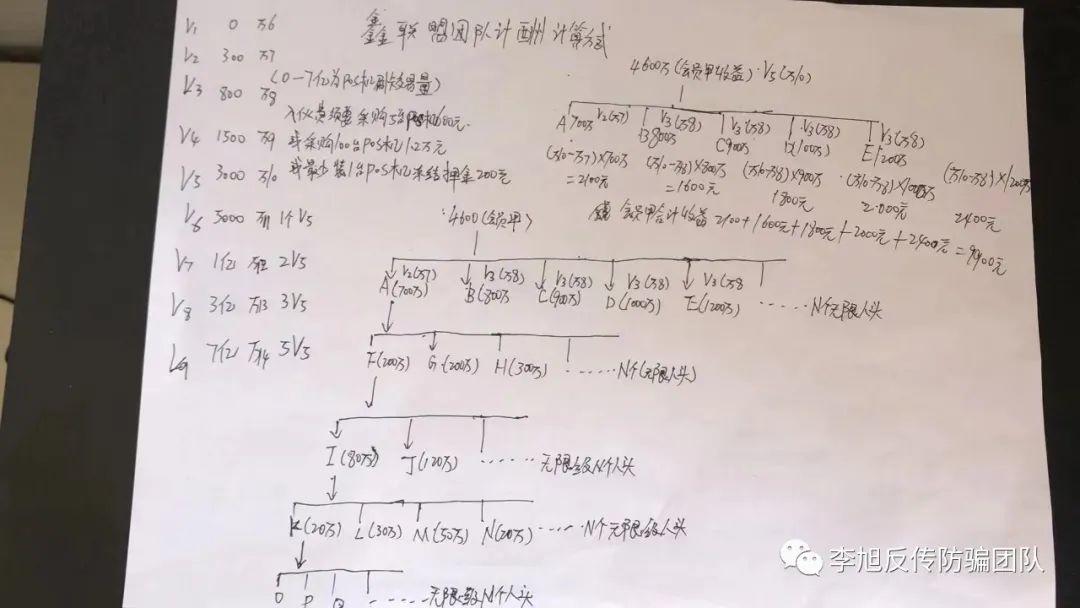 鑫联盟团队计酬计算方式
V1 0 万6
V2 300 万7
(0-7亿为POS机刷交易量)
V3 800 万8
入伙员须要采购5台POS机600元.
V4 1500 万9 或采购100台POS机1.2万元
V5 3000 万10 或最少装1台POS机冻结押金200元
V6 5000 万11 1个V5
V7 1亿 万12 2V5
V8 3亿 万13 3V5
7亿 万14 5V5
4600万(会员甲收益)·V5(万10)
V2(万7) V3(万8) V3(万8) V3(万8) V3(万8)
A700万 B800万 C900万 D(1000万) E1200万
(万10-万7)×700万 (万10-万8)×800万 (万10-万8)×900万 (万10-万8)×1000万 (万10-万8)×1200万
=2100元 =1600元 1800元 2000元 2400元
会员甲合计收益 2100+1600元+1800元+2000元+2400元=9900元
4600(会员甲)
V2(万7) V3(万8) V3(万8) V3(万8) V3(万8
A(700万) B(800万 C(900万) D(1000万) E(1200万) ......N个无限人头
F(200万) G(200万) H(300万) ......N个(无限人头)
I(80万) J(120万) ......无限级N个人头
K(20万) L(30万) M(50万) N(20万) ......N个无限级人头
O P Q ......无限级N个人头
李旭反传防骗团队